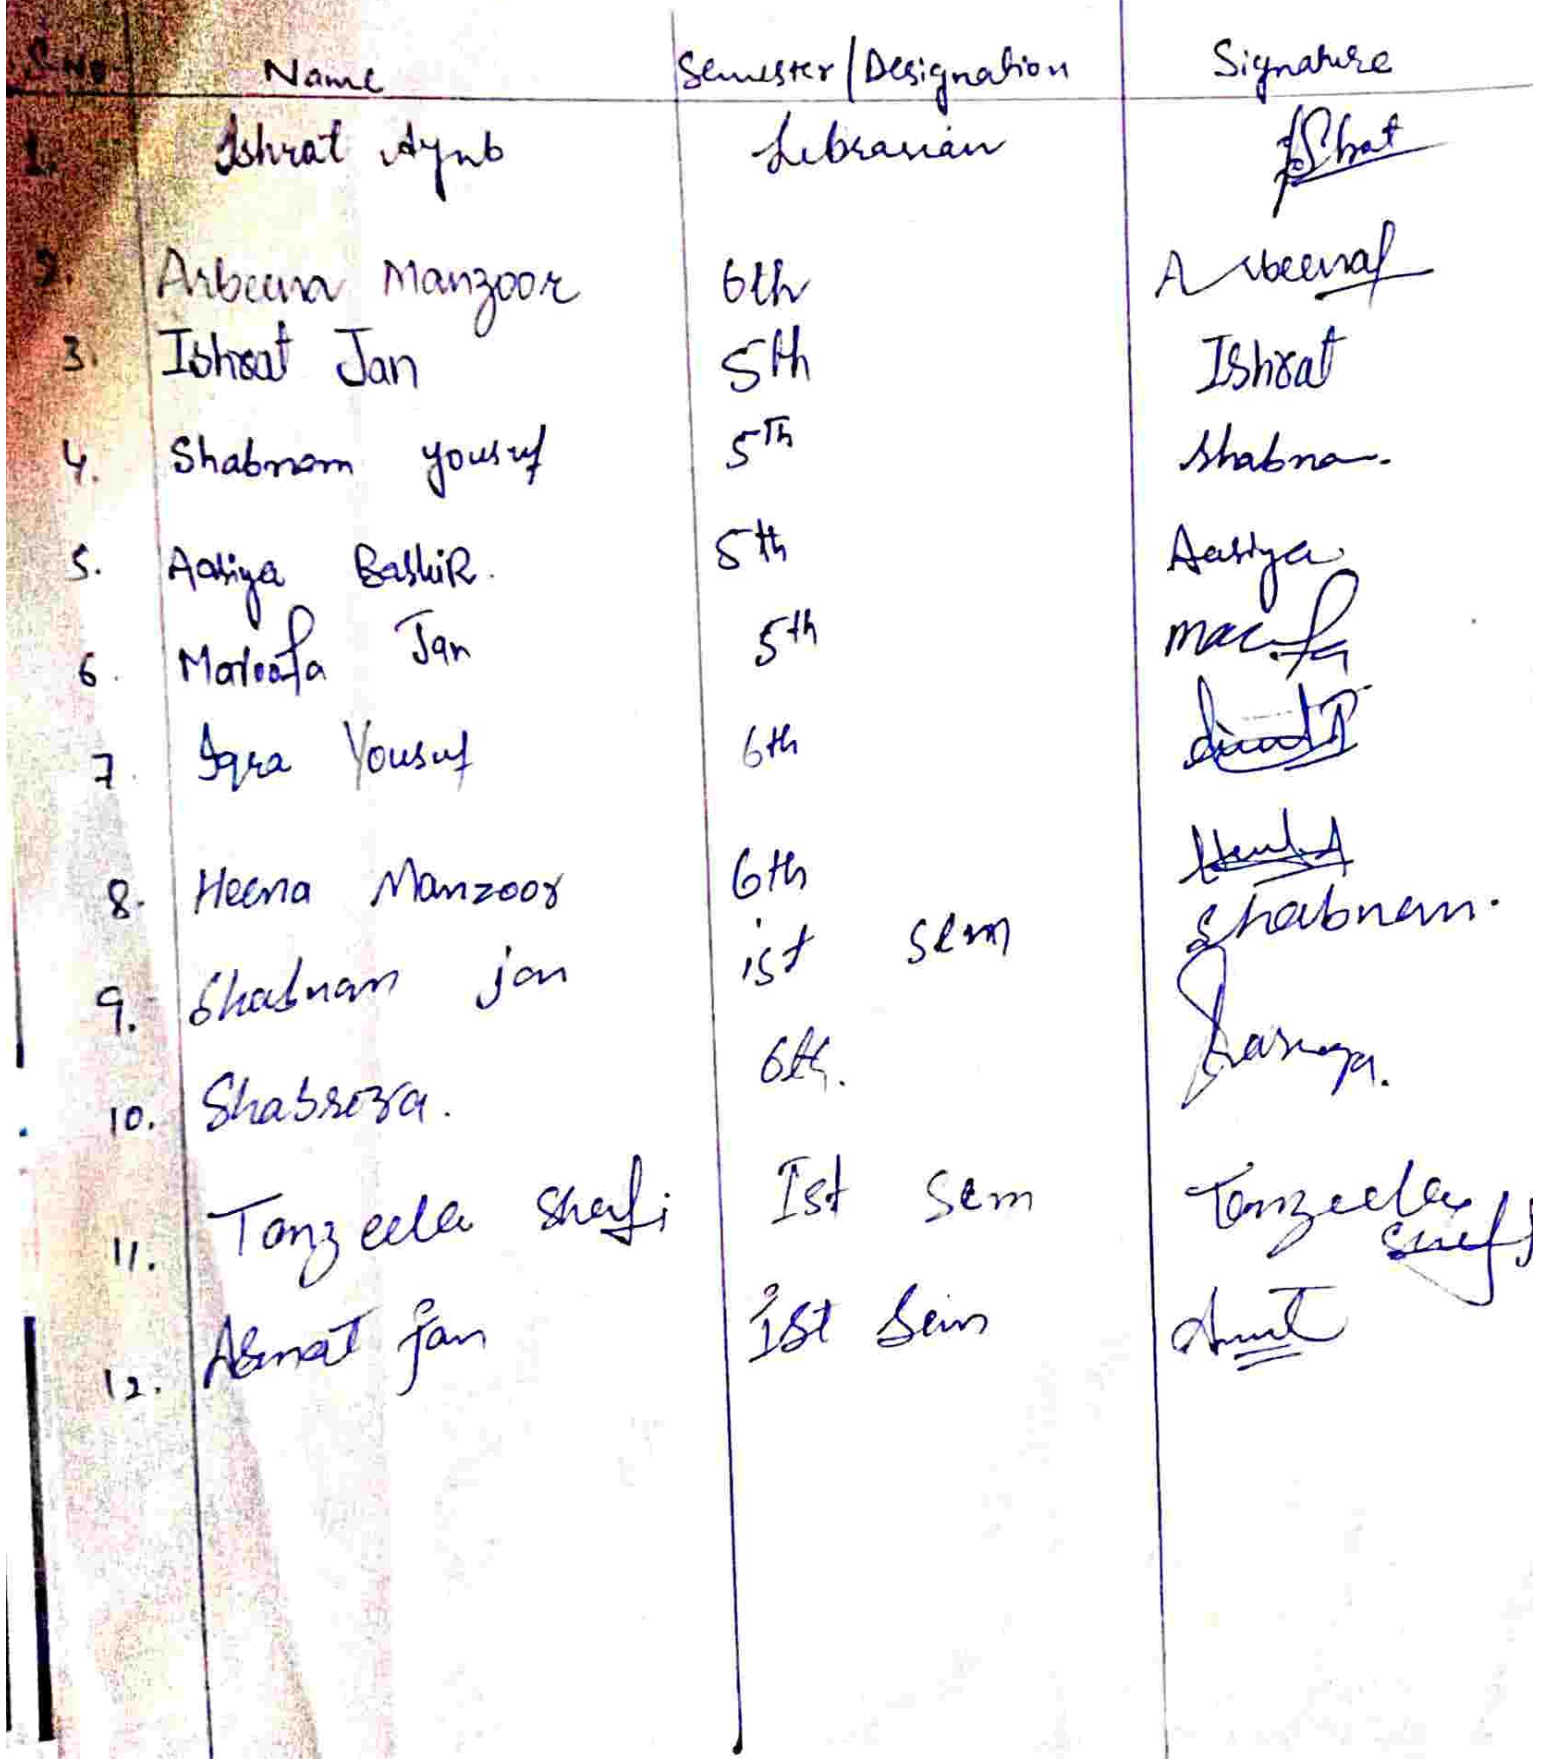 S.No. Name Semester/Designation Signature
1. Ishrat Ayub Librarian IShrat
2. Arbeena Manzoor 6th Arbeena
3. Ishrat Jan 5th Ishrat
4. Shabnam yousuf 5Th Shabna
5. Aasiya BashiR. 5th Aasiya
6. Maroofa Jan 5th
7. Iqra Yousuf 6th
8. Heena Manzoor 6th
9. Shabnam jan ist sem Shabnam.
10. Shabroza. 6th.
11. Tanzeela Shafi Ist Sem Tanzeela Shafi
12. Asmat jan Ist Sem